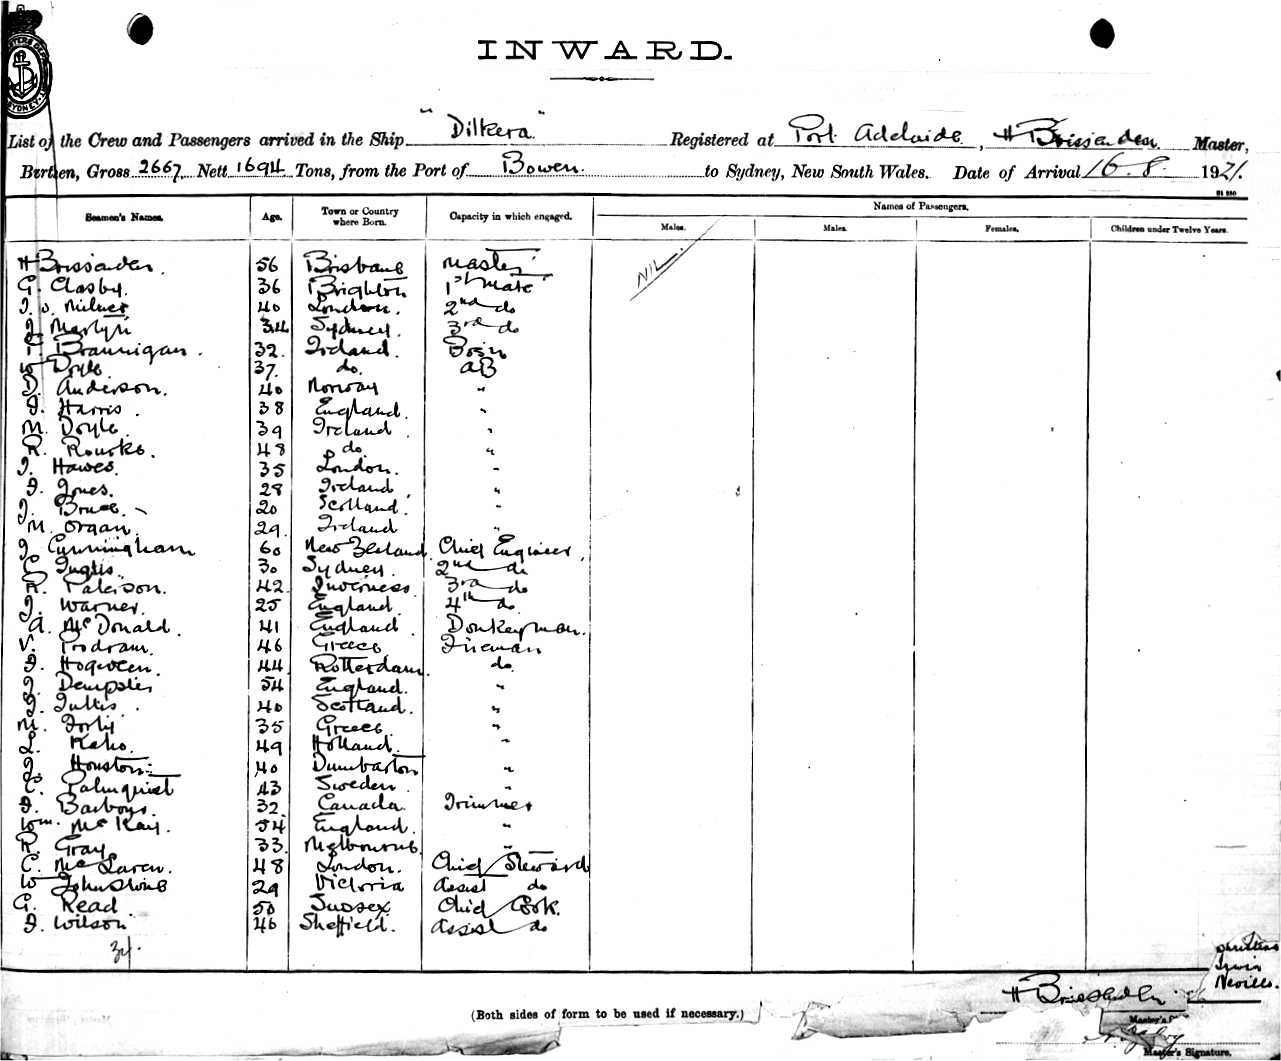 INWARD.
List of the Crew and Passengers arrived in the Ship "Dilkera" Registered at Port Adelaide, H Brissenden Master,
Burthen, Gross 2667 Nett 1694 Tons, from the Port of Bowen. to Sydney, New South Wales. Date of Arrival 16.8. 1921.
Seamen's Names. Age. Town or Country where Born. Capacity in which engaged. Names of Passengers.
Males. Males. Females. Children under Twelve Years.
H Brissenden. 56 Brisbane Master NIL.
G. Clasby. 36 Brighton 1st Mate
Milner 40 London. 2nd do
J Martyn 34 Sydney. 3rd do
Brannigan. 32. Ireland. Bosin
W Doyle. 37. do. AB
D. Anderson. 40 Norway "
J. Harris. 38 England. "
M. Doyle. 39 Ireland. "
R. Rourke. 48 do. "
J. Hawes. 35 London. "
J. Jones. 28 Ireland "
J. Bruce. 20 Scotland. "
M. Organ. 29. Ireland "
J Cunningham 60 New Zealand. Chief Engineer.
Inglis. 30 Sydney. 2nd do
R. Paterson. 42. Inverness 3rd do
J. Warner. 25 England 4th do.
A. McDonald. 41 England Donkeyman.
V. Prodram. 46 Greece Fireman
J. Hogveen. 44 Rotterdam. do.
J. Dempster 54 England. "
J. 40 Scotland. "
M. 35 Greece. "
L. Kaho. 49 Holland. "
J Houston. 40 Dumbarton "
C. Palmquist 43 Sweden. "
J. Barboys. 32. Canada. Trimmer
Wm. McKay. 54 England. "
R. Gray 33. Melbourne. "
C. McLaren. 48 London. Chief Steward
W Johnstone 29 Victoria Assist do
G. Read. 50 Sussex. Chief Cook.
J. Wilson 46 Sheffield. Assist do
34.
Irwin
Neville.
H Brissenden
(Both sides of form to be used if necessary.)
Master's Signature.